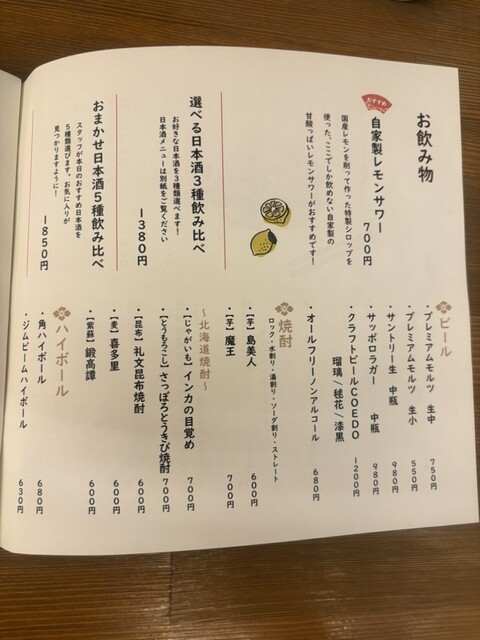 お飲み物
おすすめ
自家製レモンサワー
700円
国産レモンを削って作った特製シロップを
使った。ここでしか飲めない自家製の
甘酸っぱいレモンサワーがおすすめです！
選べる日本酒3種飲み比べ
お好きな日本酒を3種類選べます！
日本酒メニューは別紙をご覧ください
1380円
おまかせ日本酒5種飲み比べ
スタッフが本日のおすすめ日本酒を
5種類選びます。お気に入りが
見つかりますように！
1850円
ビール
・プレミアムモルツ 生中 750円
・プレミアムモルツ 生小 550円
・サントリー生 中瓶 980円
・サッポロラガー 中瓶 980円
・クラフトビールCOEDO 1200円
瑠璃/毬花/漆黒
・オールフリーノンアルコール 680円
焼酎
ロック・水割り・湯割り・ソーダ割り・ストレート
・【芋】島美人 600円
・【芋】魔王 700円
〜北海道焼酎〜
・【じゃがいも】インカの目覚め 700円
・【とうもろこし】さっぽろとうきび焼酎 700円
・【昆布】礼文昆布焼酎 600円
・【麦】喜多里 600円
・【紫蘇】鍛高譚 600円
ハイボール
・角ハイボール 680円
・ジムビームハイボール 630円